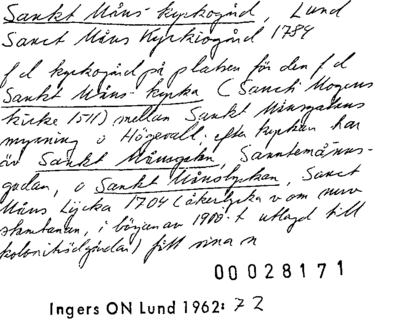 Sankt Måns kyrkogård, Lund
Sanct Måns Kyrkiogård 1784
f d kyrkogård på platsen för den f d
Sankt Måns kyrka (Sancti Mogens
kircke 1511) mellan Sankt Månsgatans
mynning o Högevall; efter kyrkan har
äv Sankt Månsgatan, Sanntemåns-
gadan, o Sankt Månslyckan, Sanct
Måns Lÿcka 1704 (åkerlycka v om nuv
stambanan, i början av 1900-t utlagd till
koloniträdgårdar) fått sina n
00028171
Ingers ON Lund 1962: 72